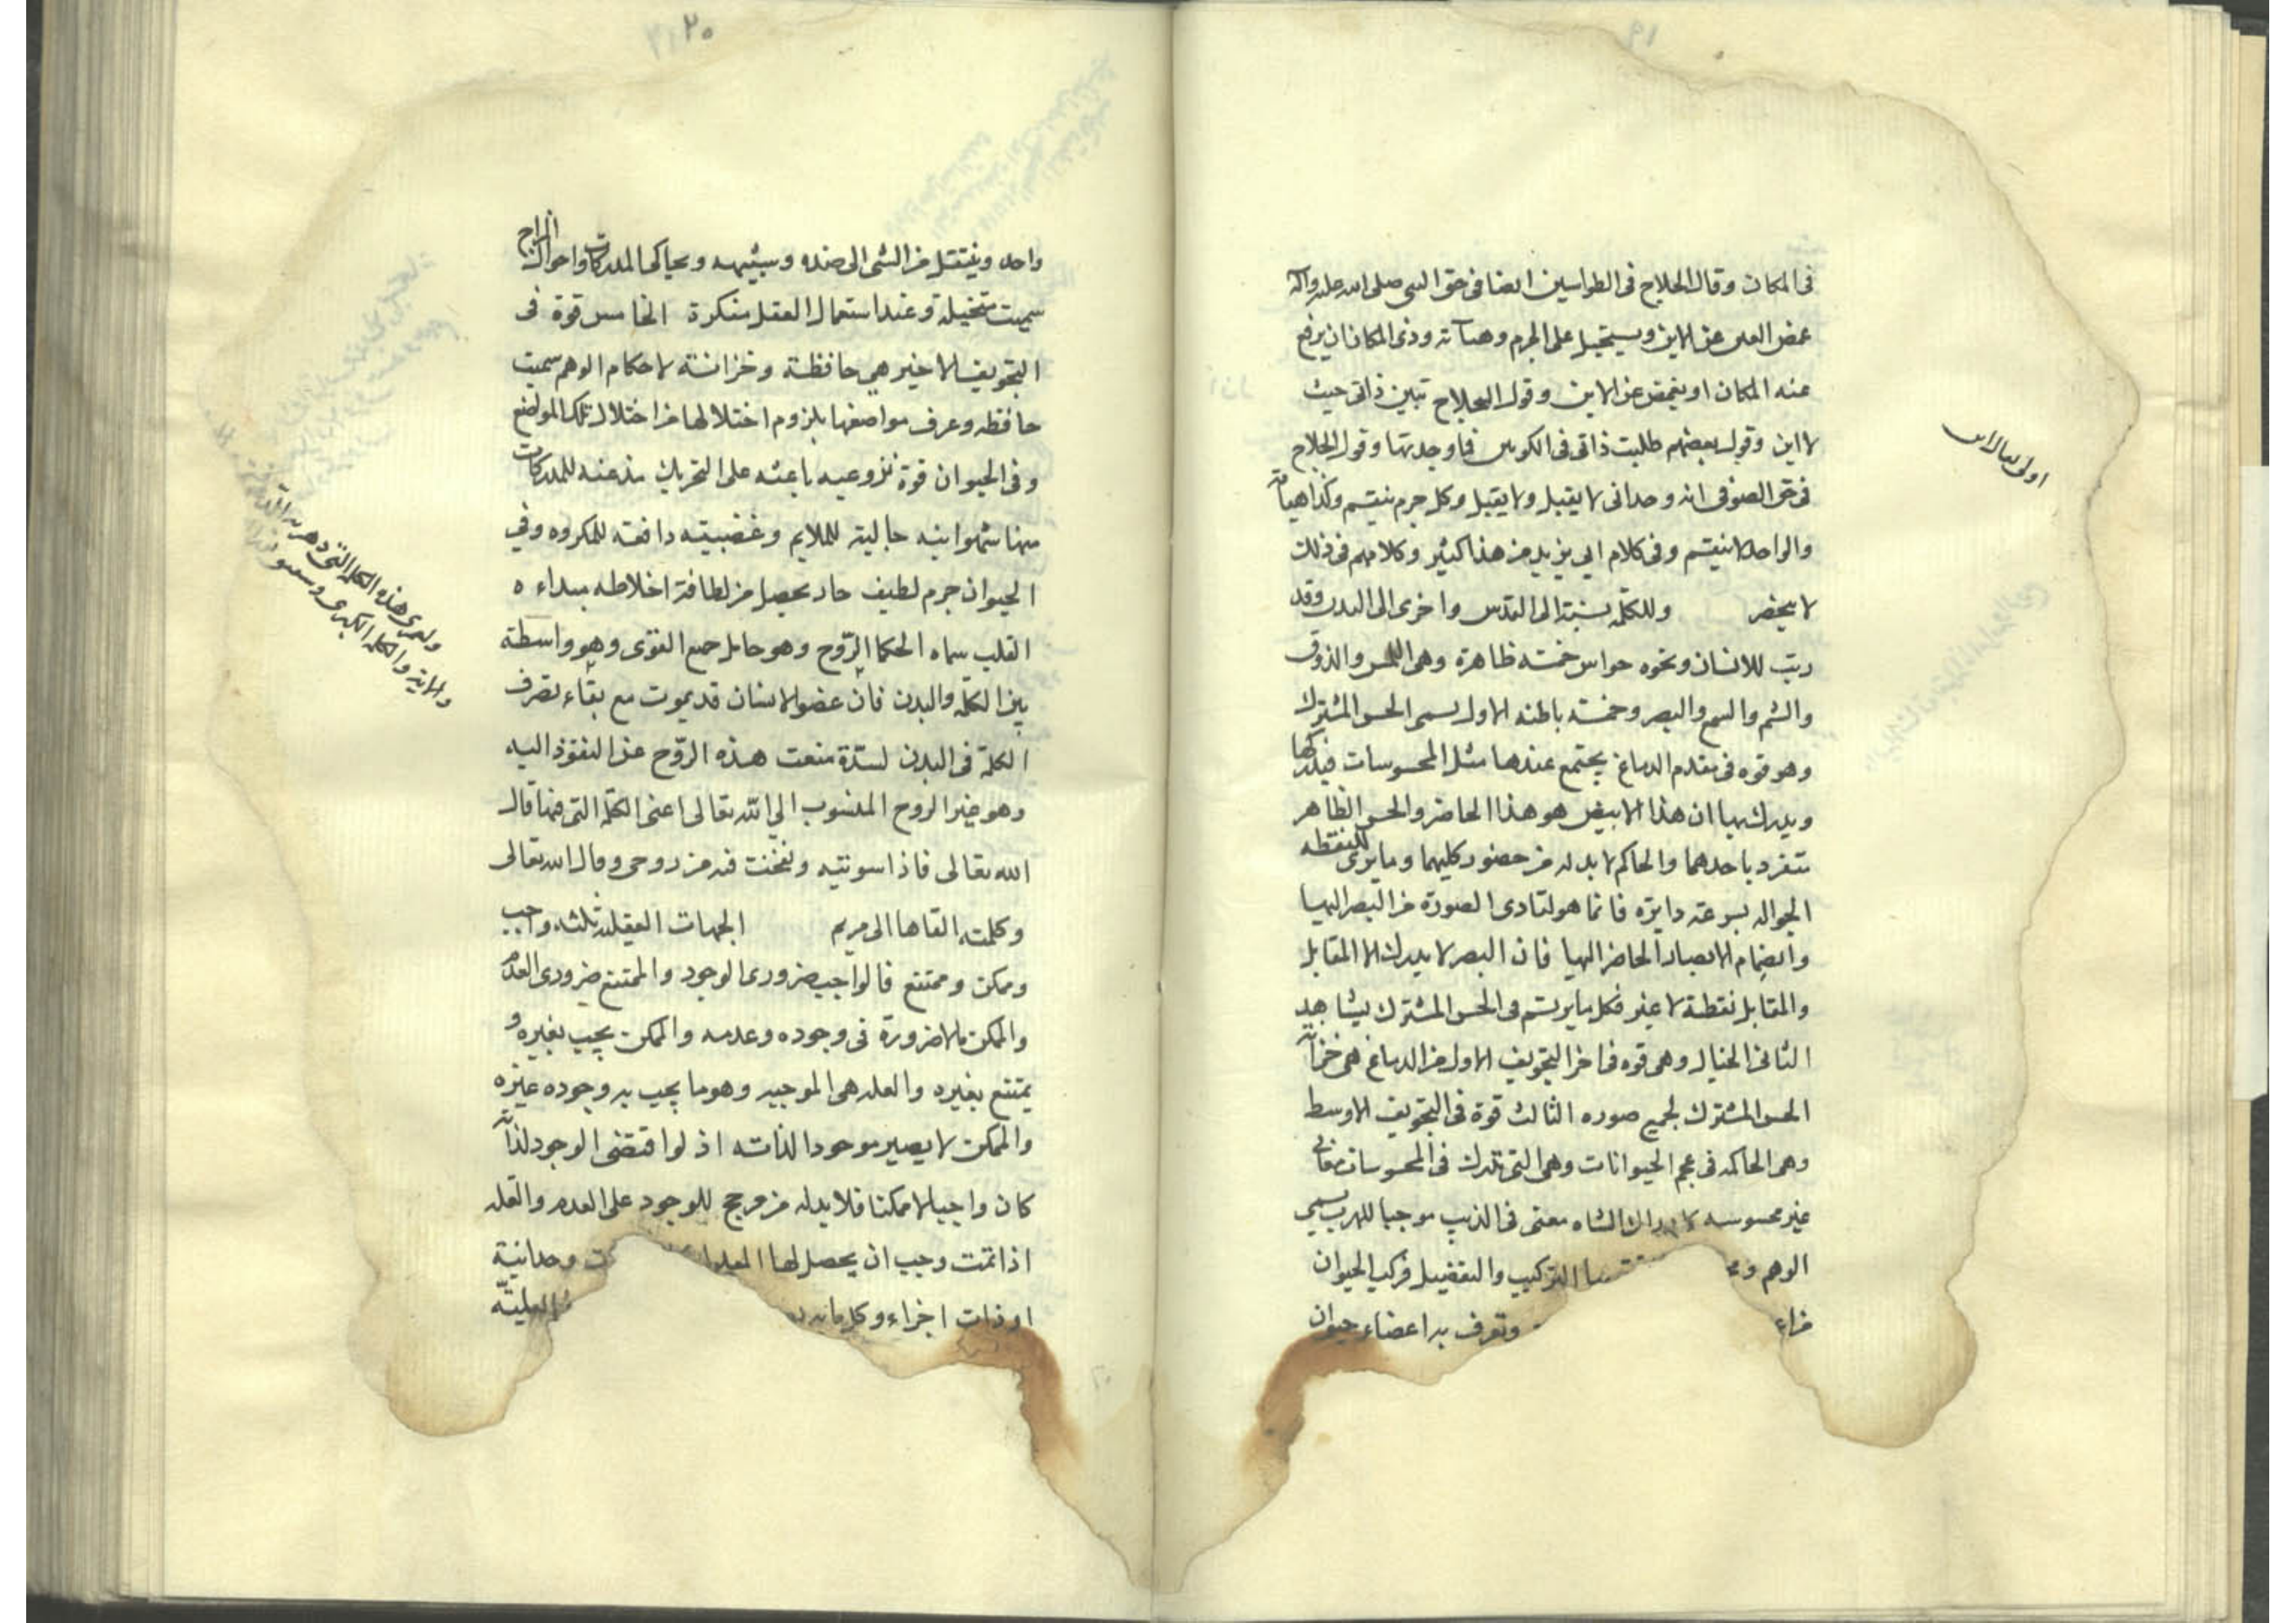 ١٩
فى المكان وقال الحلاج فى الطواسين ايضا فى حق النبى صلى الله عليه وآله
غمض العين عن الاين ويستحيل على الجرم وهيآته وذى المكان ان يرفع
عنه المكان او يغمض عن الاين وقول الحلاج تبين ذاتى حيث
لا اين وقول بعضهم طلبت ذاتى فى الكونين فما وجدتها وقول الحلاج
فى حق الصوفى انه وحدانى لا يقبل ولا يقبل وكل جرم ينقسم وكذا هيآته
والواحد لا ينقسم وفى كلام ابى يزيد من هذا كثير وكلامهم فى ذلك
لا ينحصر وللكلمة نسبة الى القدس واخرى الى البدن وقد
رتب للانسان ونحوه حواس خمسه ظاهرة وهى اللمس والذوق
والشم والسمع والبصر وخمسه باطنه الاول يسمى الحس المشترك
وهو قوه فى مقدم الدماغ يجتمع عندها مثل المحسوسات فيدركها
ويدرك بها ان هذا الابيض هو هذا الحاضر والحس الظاهر
يتفرد باحدهما والحاكم لا بد له من حضور كليهما وما يرى للنقطه
الجواله بسرعته دايره فانما هو لتادى الصورة من البصر اليها
وانضمام الابصار الحاضر اليها فان البصر لا يدرك الا المقابل
والمقابل نقطة لا غير فكل ما يرتسم فى الحس المشترك يشاهد
الثانى الخيال وهى قوه فى اخر التجويف الاول من الدماغ هى خزانة
الحس المشترك لجميع صوره الثالث قوة فى التجويف الاوسط
وهى الحاكمه فى عجم الحيوانات وهى التى تدرك فى المحسوسات معانى
غير محسوسه كادراك الشاه معنى فى الذيب موجبا للهرب يسمى
الوهم و التركيب والتفصيل فركب الحيوان
وتعرف به اعضاء حيوان
٢٠
واحد وينتقل من الشى الى ضده وشبيهه ويحاكى المدركات واحوال المزاج
سميت متخيلة وعند استعمال العقل مفكرة الخامس قوة فى
التجويف الاخير هى حافظة وخزانة لاحكام الوهم سميت
حافظه وعرف مواضعها بلزوم اختلالها من اختلال تلك المواضع
وفى الحيوان قوة نزوعيه باعثه على التحريك مذعنه للمدركات
منها شهوانيه جالبة للملايم وغضبيته دافعه للمكروه وفي
الحيوان جرم لطيف حار يحصل من لطافة اخلاطه مبداءه
القلب سماه الحكما الرّوح وهو حامل جميع القوى وهو واسطة
بين الكلمه والبدن فان عضو الانسان قد يموت مع بقاء تصرف
الكلمة فى البدن لسدّة منعت هذه الرّوح عن النفوذ اليه
وهو غير الروح المنسوب الي الله تعالى اعنى الكلمة التى فيها قال
الله تعالى فاذا سويته ونفخت فيه من روحى وقال الله تعالى
وكلمته القاها الى مريم الجهات العقليه ثلثه واجب
وممكن وممتنع فالواجب ضرورى الوجود والممتنع ضرورى العدم
والممكن ما لا ضرورة فى وجوده وعدمه والممكن يجب بغيره و
يمتنع بغيره والعله هى الموجبه وهو ما يجب به وجود غيره
والممكن لا يصير موجودا لذاته اذ لو اقتضى الوجود لذاته
كان واجبا لا ممكنا فلا بد له من مرجح للوجود على العدم والعله
اذا تمت وجب ان يحصل لها المعلول وحدانية
او ذات اجزاء وكل ماله العليّه